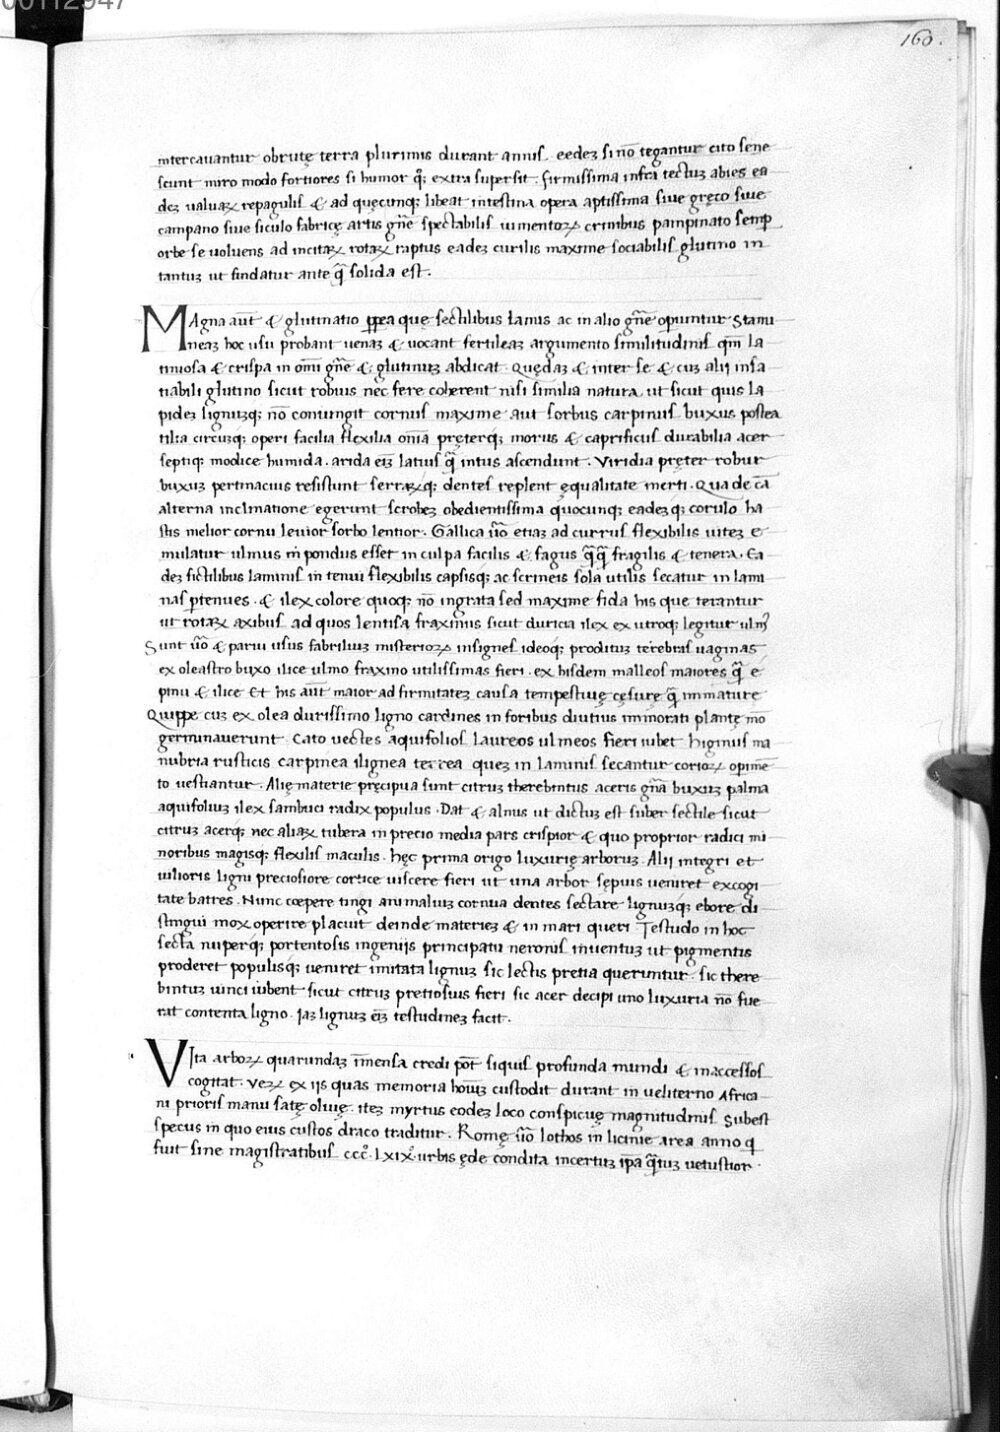 00112947
160.
intercauantur obrutę terra plurimis durant annis eedeʒ si nō tegantur cito sene
scunt miro modo fortiores si humor q̊; extra supersit. firmissima infra tectuʒ abies ea
deʒ ualuaꝝ repagulis & ad quęcunq; libeat intestina opera aptissima siue gręco siue
campano siue siculo fabricę artis gn̄e spectabilis iumentoꝝ crinibus pampinato semꝑ
orbe se uoluens ad incitaꝝ rotaꝝ raptus eadeʒ curilis maxime sociabilis glutino in
tantuʒ ut findatur ante q̄ solida est.
MAgna aūt & glutinatio ꝓpꝑea quę sectilibus lamis ac in alio gn̄e operiuntur Stami
neaʒ hoc usu probant uenaʒ & uocant fertileaʒ argumento similitudinis qm̄ la
tiniosa & crispa in omī gn̄e & glutinuʒ abdicat. Quędaʒ & inter se & cuʒ alijs insa
tiabili glutino sicut robius nec fere coherent nisi similia natura ut sicut quis la
pideʒ lignuʒq; nō coniungit cornus maxime aut sorbus carpinus buxus postea
tilia circuʒq; operi facilia flexilia om̄ia pręterq; morus & caprificus durabilia acer
septiq; modice humida. arida eīʒ latius q̄ intus ascendunt. Viridia pręter robur
buxuʒ pertinacius resistunt serraꝝq; dentes replent ęqualitate inerti. Qua de cā
alterna inclinatione egerunt scrobeʒ obedientissima quocunq; eadeʒ q; corulo ha
stis melior cornu leuior sorbo lentior. Gallica ūo etiaʒ ad currus flexibilis uiteʒ e
mulatur ulmus ni pondus esset in culpa facilis & fagus q̄q̄ fragilis & tenera. Ea
deʒ fictilibus laminis in tenui flexibilis capsisq; ac scrineis sola utilis secatur in lami
nas ꝑtenues. & ilex colore quoq; nō ingrata sed maxime fida his que terantur
ut rotaꝝ axibus ad quos lentisa fraxinus sicut duricia ilex ex utroq; legitur ulm̄s
Sunt ūo & parui usus fabriliuʒ misterioꝝ insignes ideoq; prodituʒ terebras uaginas
ex oleastro buxo ilice ulmo fraxino utilissimas fieri. ex hisdem malleos maiores q̄ e
pinu & ilice Et his aūt maior ad firmitateʒ causa tempestiuę cęsurę q̄ immature
Quippe cuʒ ex olea durissimo ligno cardines in foribus diutius immorati plantę mō
germinauerunt. Cato uectes aquifolios laureos ulmeos fieri iubet higinus ma
nubria rusticis carpinea ilignea terrea queʒ in laminis secantur corioꝝ opimē
to uestiantur. Alię materie pręcipua sunt citrus therebintus aceris gn̄a buxuʒ palma
aquifoliuʒ ilex sambuci radix populus. Dat & alnus ut dictuʒ est suber sectile sicut
citruʒ acerq; nec aliaꝝ tubera in precio media pars crispior & quo proprior radici mi
noribus magisq; flexilis maculis. hęc prima origo luxurię arboruʒ. Alij integri et
uilioris ligni preciosiore cortice uiscere fieri ut una arbor sępius ueniret excogi
tate batres. Nunc coepere tingi animaliuʒ cornua dentes sectare lignuʒq; ebore di
stingui mox operire placuit deinde materieʒ & in mari queri Testudo in hoc
secta nuperq; portentosis ingenijs principatu neronis inuentuʒ ut pigmentis
proderet populisq; ueniret imitata lignuʒ sic lectis pretia queruntur. sic there
bintuʒ uinci iubent sicut citruʒ pretiosius fieri sic acer decipi uno luxuria nō fue
rat contenta ligno. jaʒ lignuʒ eīʒ testudineʒ facit.
VIta arboꝝ quarundaʒ īmensa credi pōt siquis profunda mundi & inaccessos
cogitat. Veꝝ ex ijs quas memoria hoīuʒ custodit durant in ueliterno Africa
ni prioris manu satę oliuę. iteʒ myrtus eodeʒ loco conspicuę magnitudinis Subest
specus in quo eius custos draco traditur. Romę ūo lothos in licinie area anno q̄
fuit sine magistratibus ccc̊. Lxix̊. urbis ęde condita incertuʒ ip̄a q̄tuʒ uetustior.